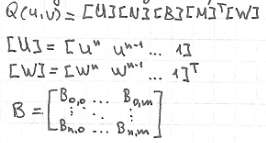 Q(u,v) = [U][N][B][M]ᵀ[W]
[U] = [uⁿ uⁿ⁻¹ ... 1]
[W] = [wⁿ wⁿ⁻¹ ... 1]ᵀ
B = [B₀,₀ ... B₀,ₘ
⋮ ⋱ ⋮
Bₙ,₀ ... Bₙ,ₘ]